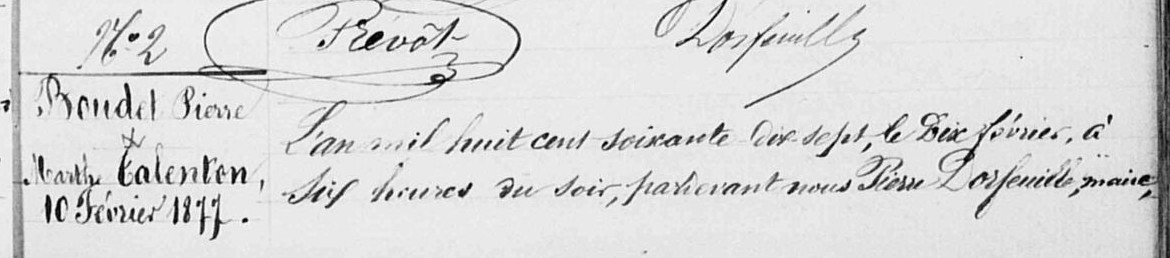 N.º 2
Prévôt
Dorfeuille
Boudet Pierre
&
Marthe Talenton,
10 Février 1877.
L'an mil huit cent soixante dix sept, le Dix février, à
six heures du soir, parderant nous Pierre Dorfeuille, maire,